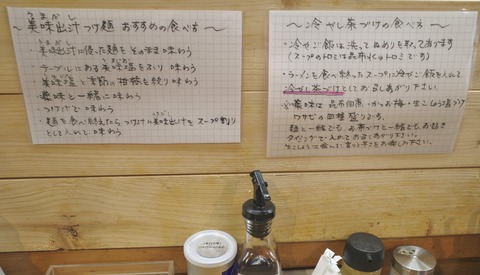 うまだし
～美味出汁つけ麺 おすすめの食べ方～
・美味出汁に浸った麺をそのまま味わう
・テーブルにある美味塩をふり味わう
・美味塩と季節の柑橘を絞り味わう
・薬味と一緒に味わう
・つけ汁で味わう
・麺を食べ終えたらつけ汁に美味出汁をスープ割り
として入れて味わう
～冷やし茶づけの食べ方～
・冷やご飯は洗ってぬめりを取って有ります
(スープのトロミは昆布水のトロミです)
・ラーメンを食べ終えたスープに冷やご飯を入れて
冷やし茶づけとしてお召しあがり下さい。
薬味は昆布佃煮・かつお梅・生こしょう塩づけ
ワサビの四種盛りです。
麺と一緒でも、お茶づけと一緒でも、お好き
タイミングで入れてお召しあがり下さい。